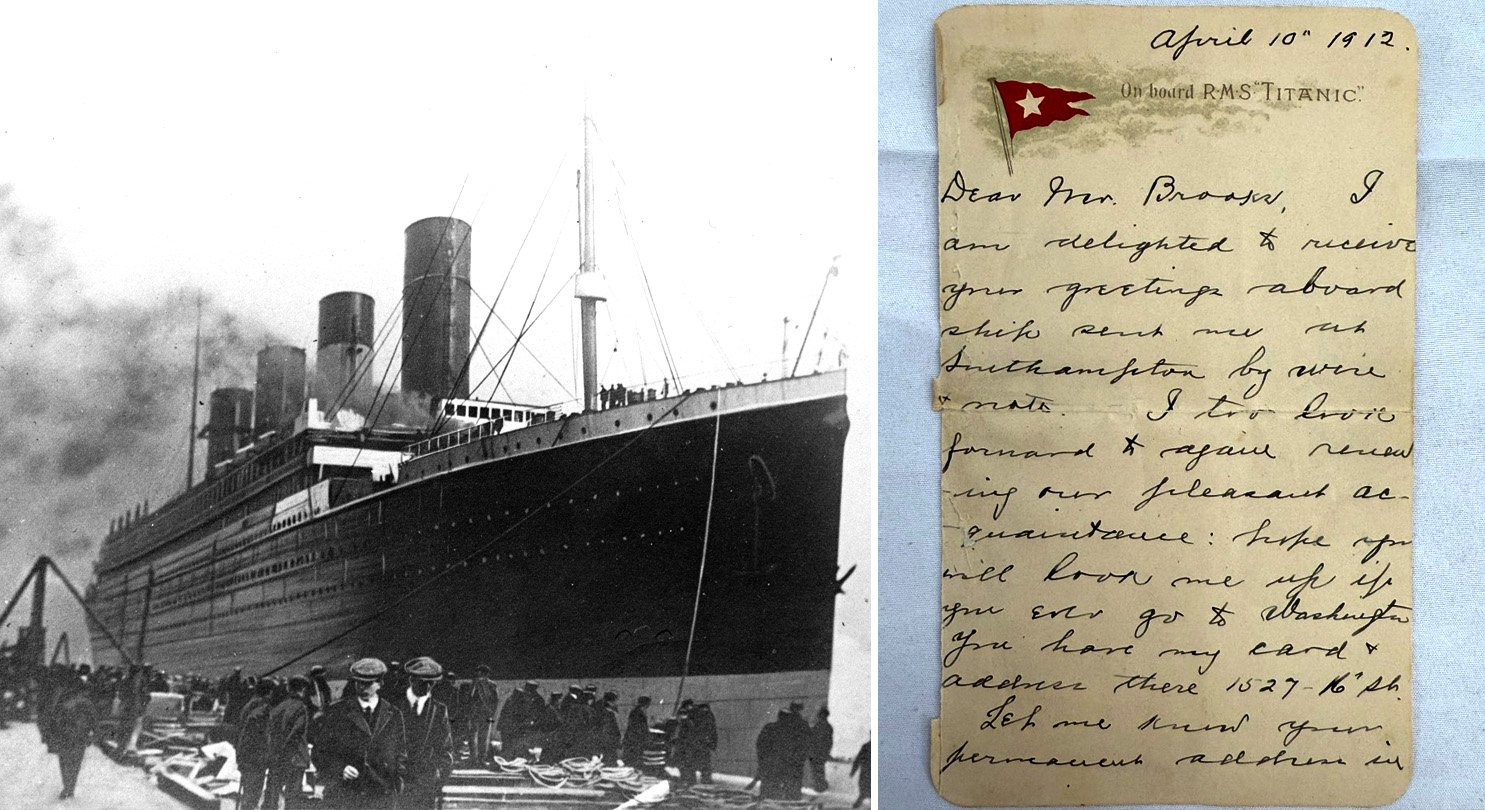 April 10" 1912.
On board R·M·S "TITANIC".
Dear Mr. Brooks, I
am delighted to receive
your greetings aboard
ship sent me at
Southampton by wire
& note. I too look
forward to again renew
-ing our pleasant ac-
quaintance: hope you
will look me up if
you ever go to Washington
You have my card &
address there 1527-16" St.
Let me know your
permanent address in